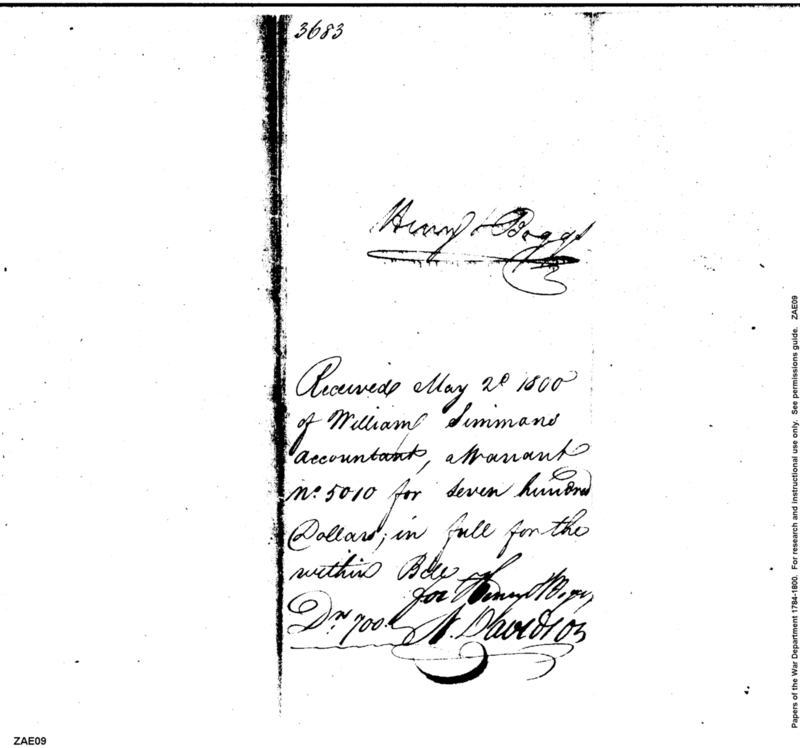 3683
Henry Boggs
Received May 2d 1800
of William Simmons
accountant, a Warrant
No. 5010 for seven hundred
Dollars, in full for the
within Bill
for Henry Boggs
Drs 700. N. Davidson
ZAE09
Papers of the War Department 1784-1800. For research and instructional use only. See permissions guide. ZAE09